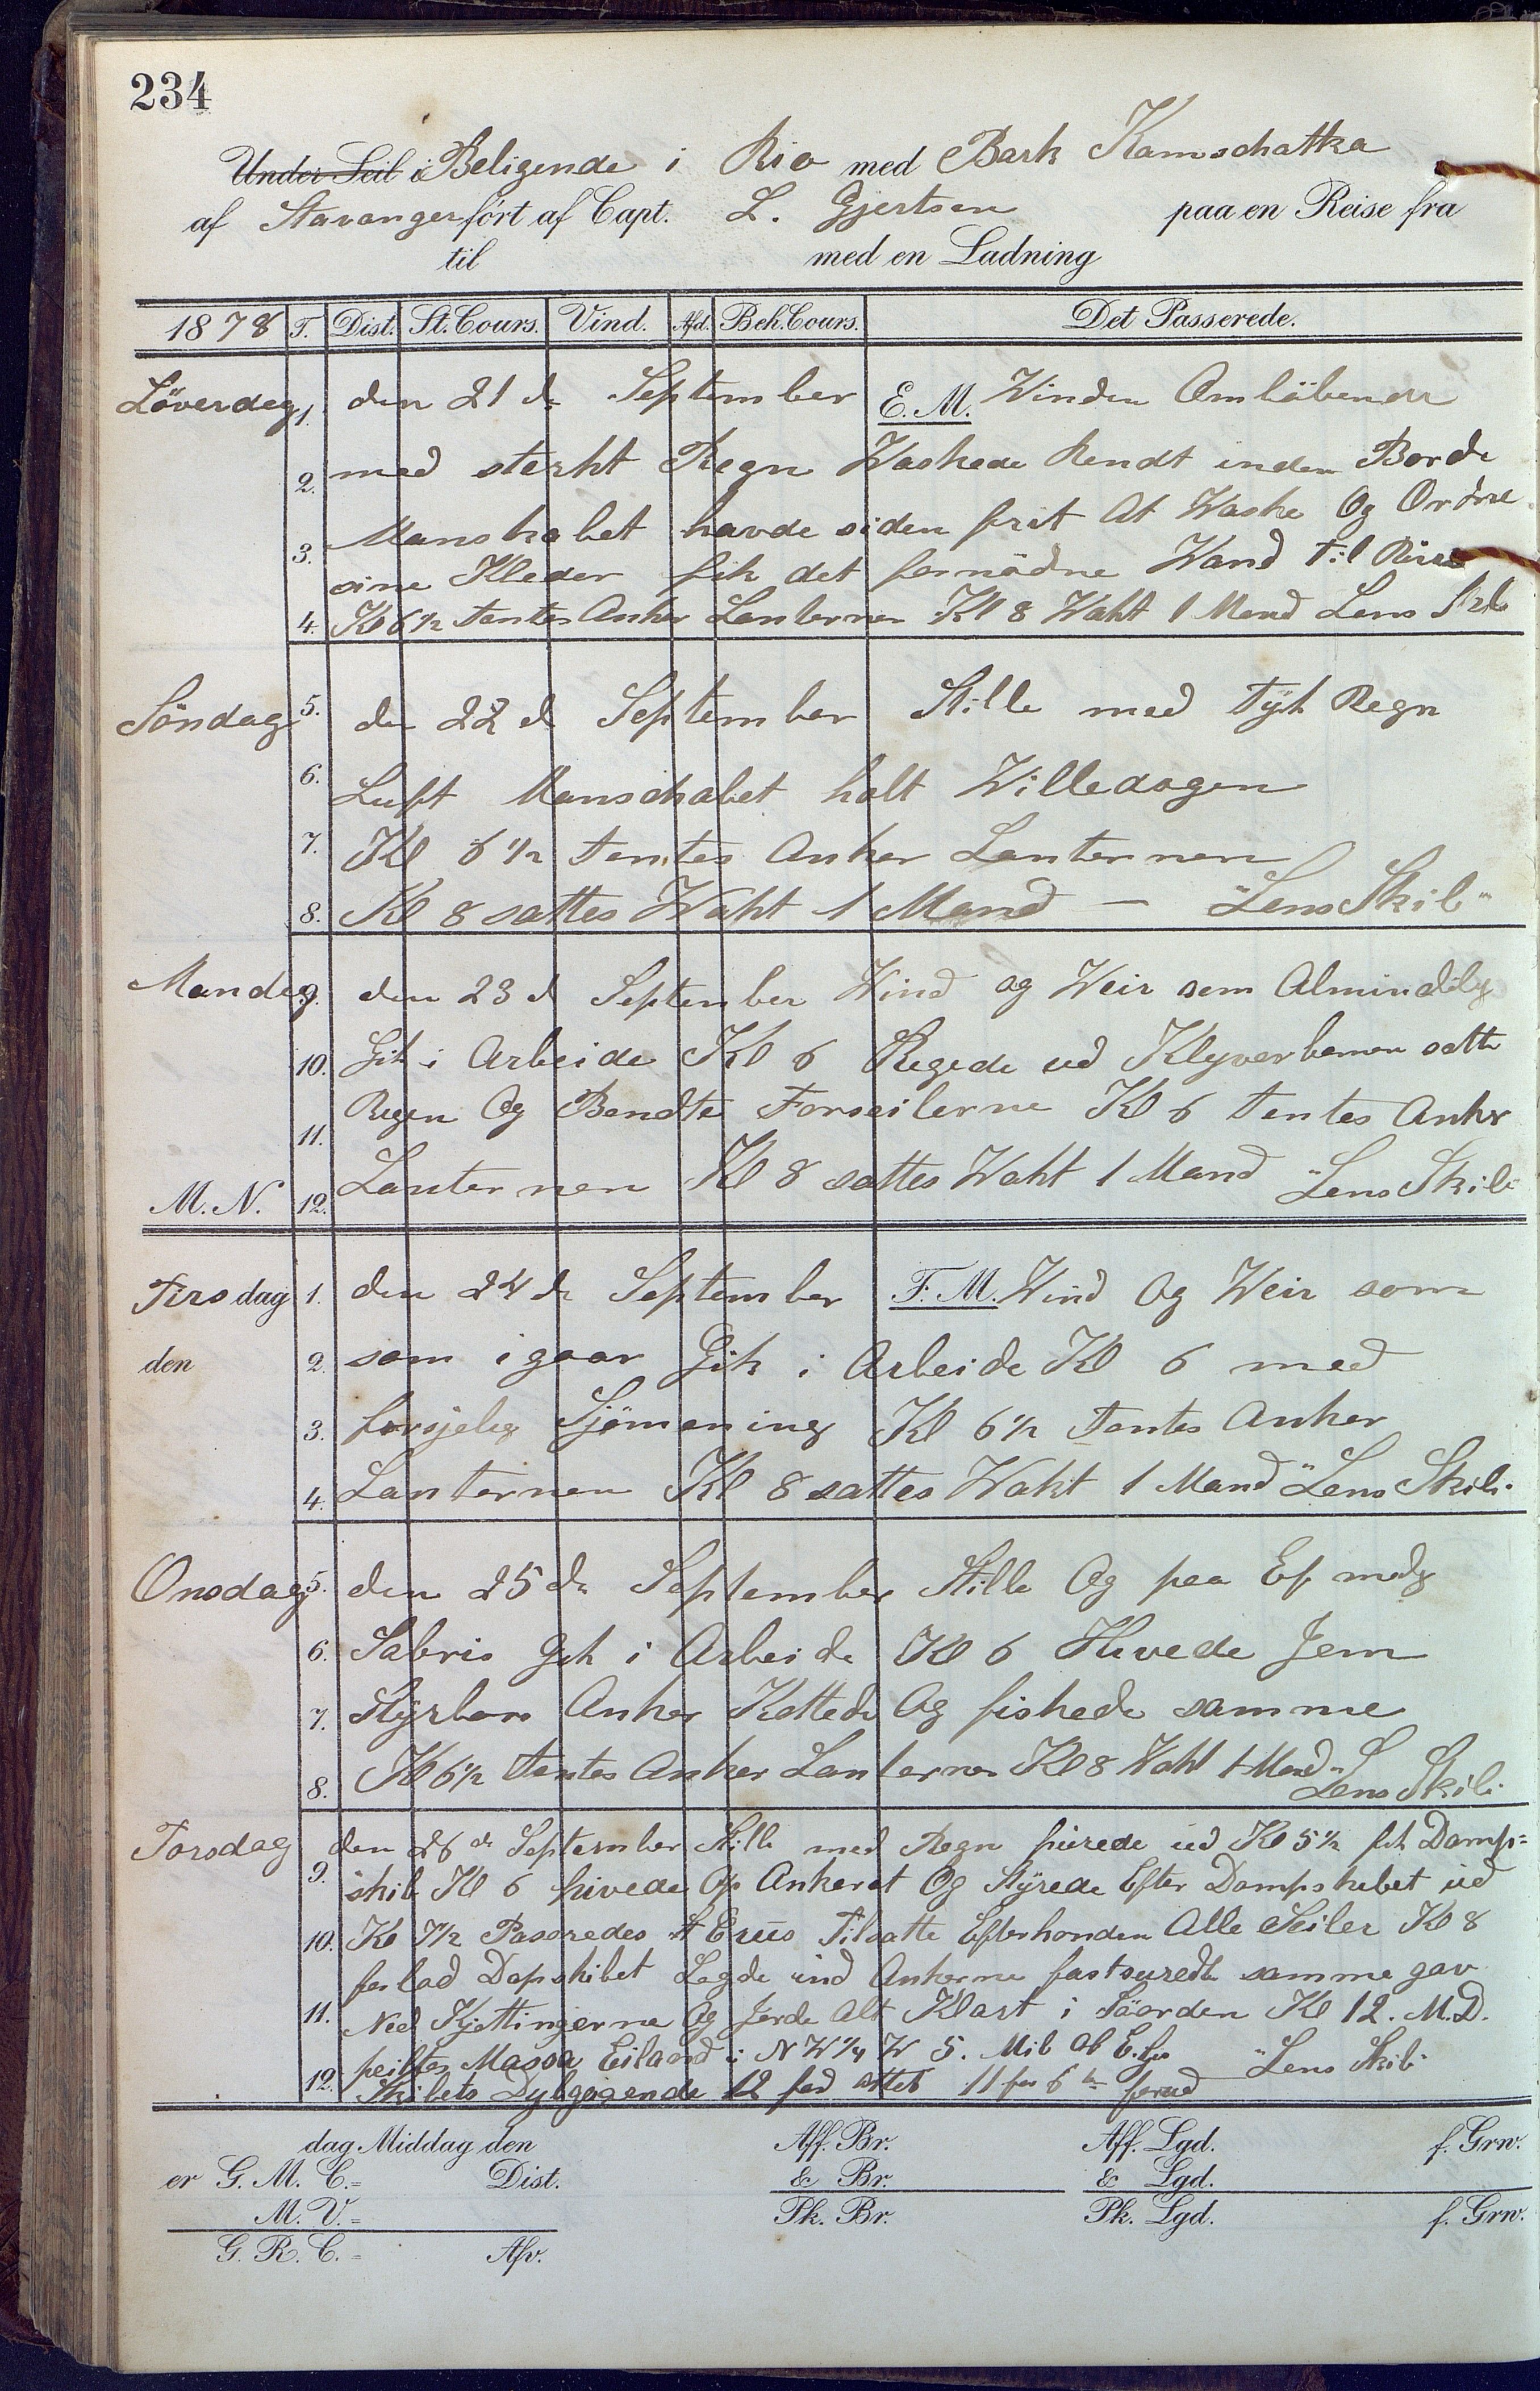 234
Under Seil i Beligende i Rio med Bark Kamschatka
af Stavanger fört af Capt. L. Gjertsen paa en Reise fra
til med en Ladning
1878 T. Dist. St. Cours. Vind. Afd. Beh. Cours. Det Passerede.
Löverdag 1. den 21 d. September E. M. Vinden Omlöbende
2. med sterkt Regn Waskede Rendt inden Borde
3. Manskabet havde siden frit At Waske Og Ordne
sine Kleder fik det fornödne Wand til
4. Kl 6 1/2 tentes Anker Lanternen Kl 8 Waht 1 Mand Lens Skb
Söndag 5. den 22 d September Stille med Tyk Regn
6. Luft Manschabet holt Willedagen
7. Kl 6 1/2 tentes Anker Lanternen
8. Kl 8 sattes Waht 1 Mand — "Lens Skib"
Mandag 9. den 23 d September Wind og Weir som Almindelig
10. Gik i Arbeide Kl 6 Regede ud Klyverbomen satte
11. Regen Og Bendte Forseilerne Kl 6 tentes Anker
M. N. 12. Lanternen Kl 8 sattes Waht 1 Mand "Lens Skib"
Tirsdag 1. den 24 d. September F. M. Wind Og Weir som
den 2. som igaar Gik i Arbeide Kl 6 med
3. forsjelig Sjömening Kl 6 1/2 Tentes Anker
4. Lanternen Kl 8 sattes Wakt 1 Mand "Lens Skib.
Onsdag 5. den 25 d. September Stille Og paa Ef mdg
6. Sabris Gik i Arbeide Kl 6 Hevede Jem
7. Styrbors Anker Kattede Og fiskede samme
8. Kl 6 1/2 tentes Anker Lanternen Kl 8 Waht 1 Mand "Lens Skib.
Torsdag den 26 d. September Stille med Regn purede ud Kl 5 1/2 fik Damp=
9. skib Kl 6 hivede Op Ankeret Og Styrede Efter Dampskebet ud
10. Kl 7 1/2 Passredes St Crus Tilsatte Efterhonden Alle Seiler Kl 8
forlod Dapskibet Lagde ind Ankerne fastsurede samme gav
11. Ned Kjettingerne Og Jorde Alt Klart i Kl 12. M.D.
peiltes Eiland i N W 1/4 W 5. Mil Af "Lens Skib"
12. Skibets Dybgaaende 12 fod attet 11 for 6 forud
dag Middag den Aff. Br. Aff. Lgd. f. Grw.
er G. M. C.= Dist. & Br. & Lgd.
M. V.= Pk. Br. Pk. Lgd. f. Grw.
G. R. C.= Afv.